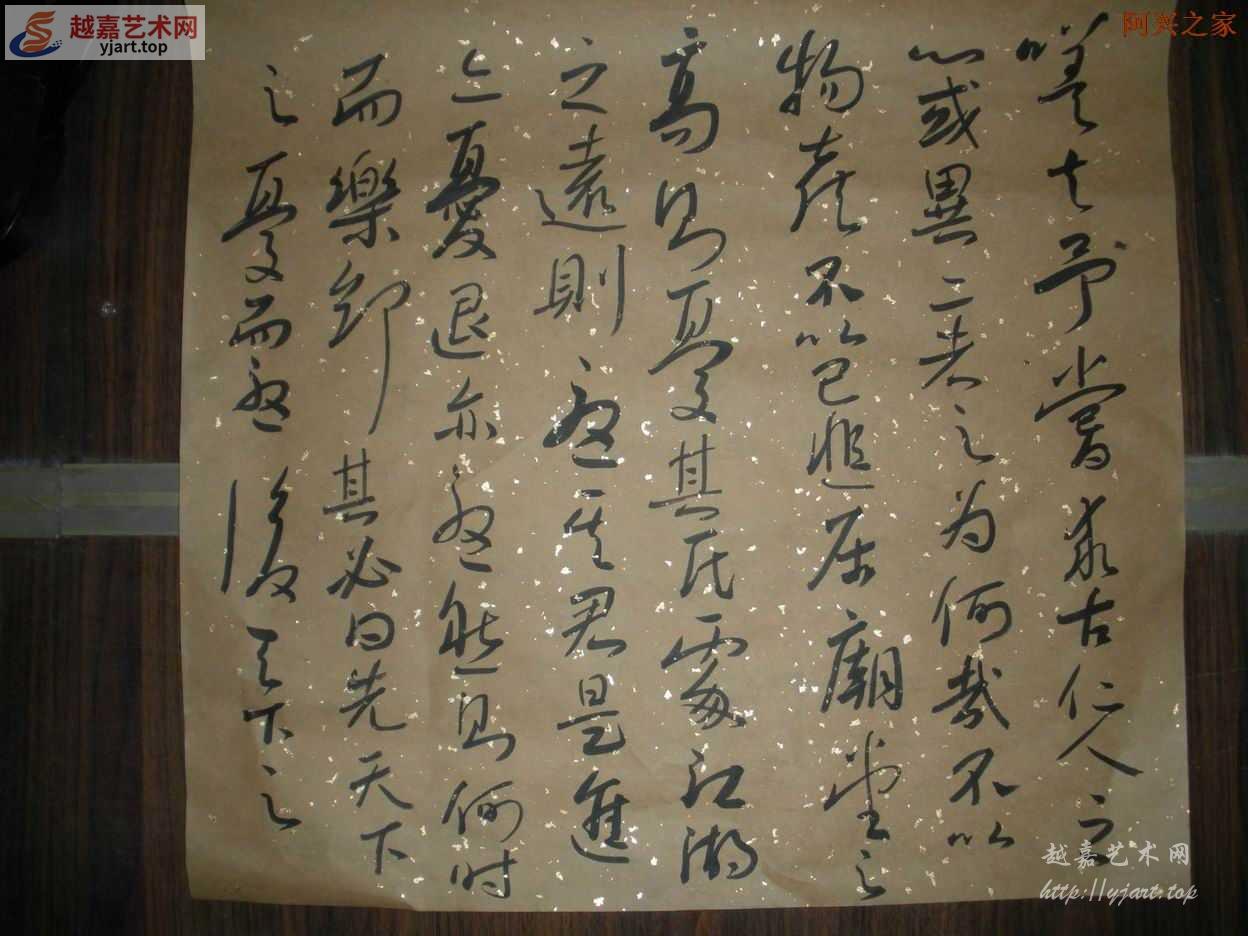 越嘉艺术网
yjart.top
阿兴之家
嗟夫予嘗求古仁人之
心或異二者之为何哉不以
物喜不以己悲居廟堂之
高则憂其民處江湖
之遠則憂其君是進
亦憂退亦憂然则何时
而樂耶其必曰先天下
之憂而憂後天下之
越嘉艺术网
http://yjart.top